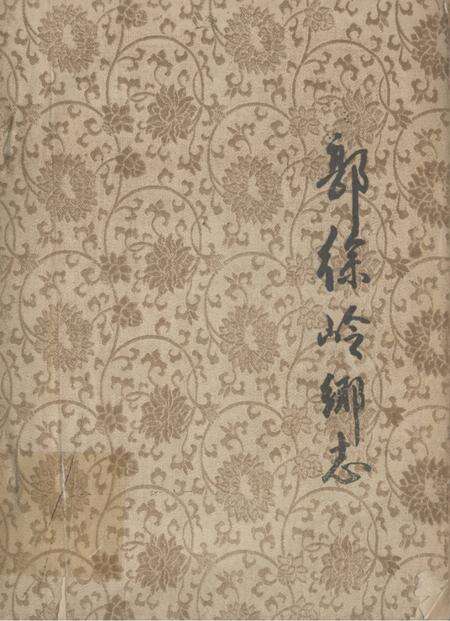 郭徐岭乡志